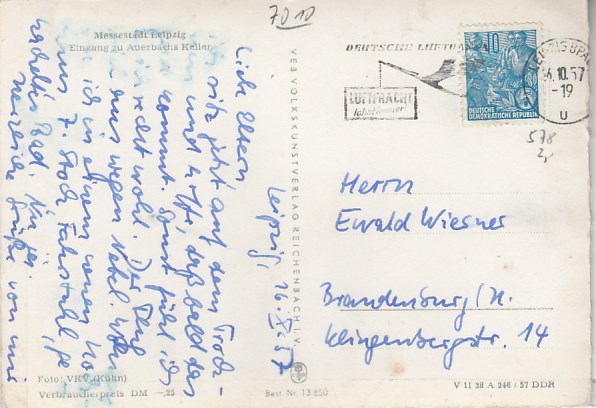 7010
Messestadt Leipzig
Eingang zu Auerbachs Keller
Leipzig,
16. X. 57
Liebe Eltern
sitz jetzt auf dem Trock-
und hoffe, daß bald das
kommt. Sonst fühl ich
wohl. Der
wegen Nebel.
ich in einem neuen Ho
7. Stock Fahrstuhl,
Bad.
Grüße von
Foto: VKV (Kühn)
Verbraucherpreis DM —,25
VEB VOLKSKUNSTVERLAG REICHENBACH I. V.
Best. Nr. 13 850
DEUTSCHE LUFTHANSA
LUFTFRACHT
lohnt immer!
LEIPZIG BPA
.10.57
-19
u
10
DEUTSCHE
DEMOKRATISCHE REPUBLIK
578
2,-
Herrn
Ewald Wiesner
Brandenburg/H.
Klingenbergstr. 14
V 11 28 A 246 / 57 DDR